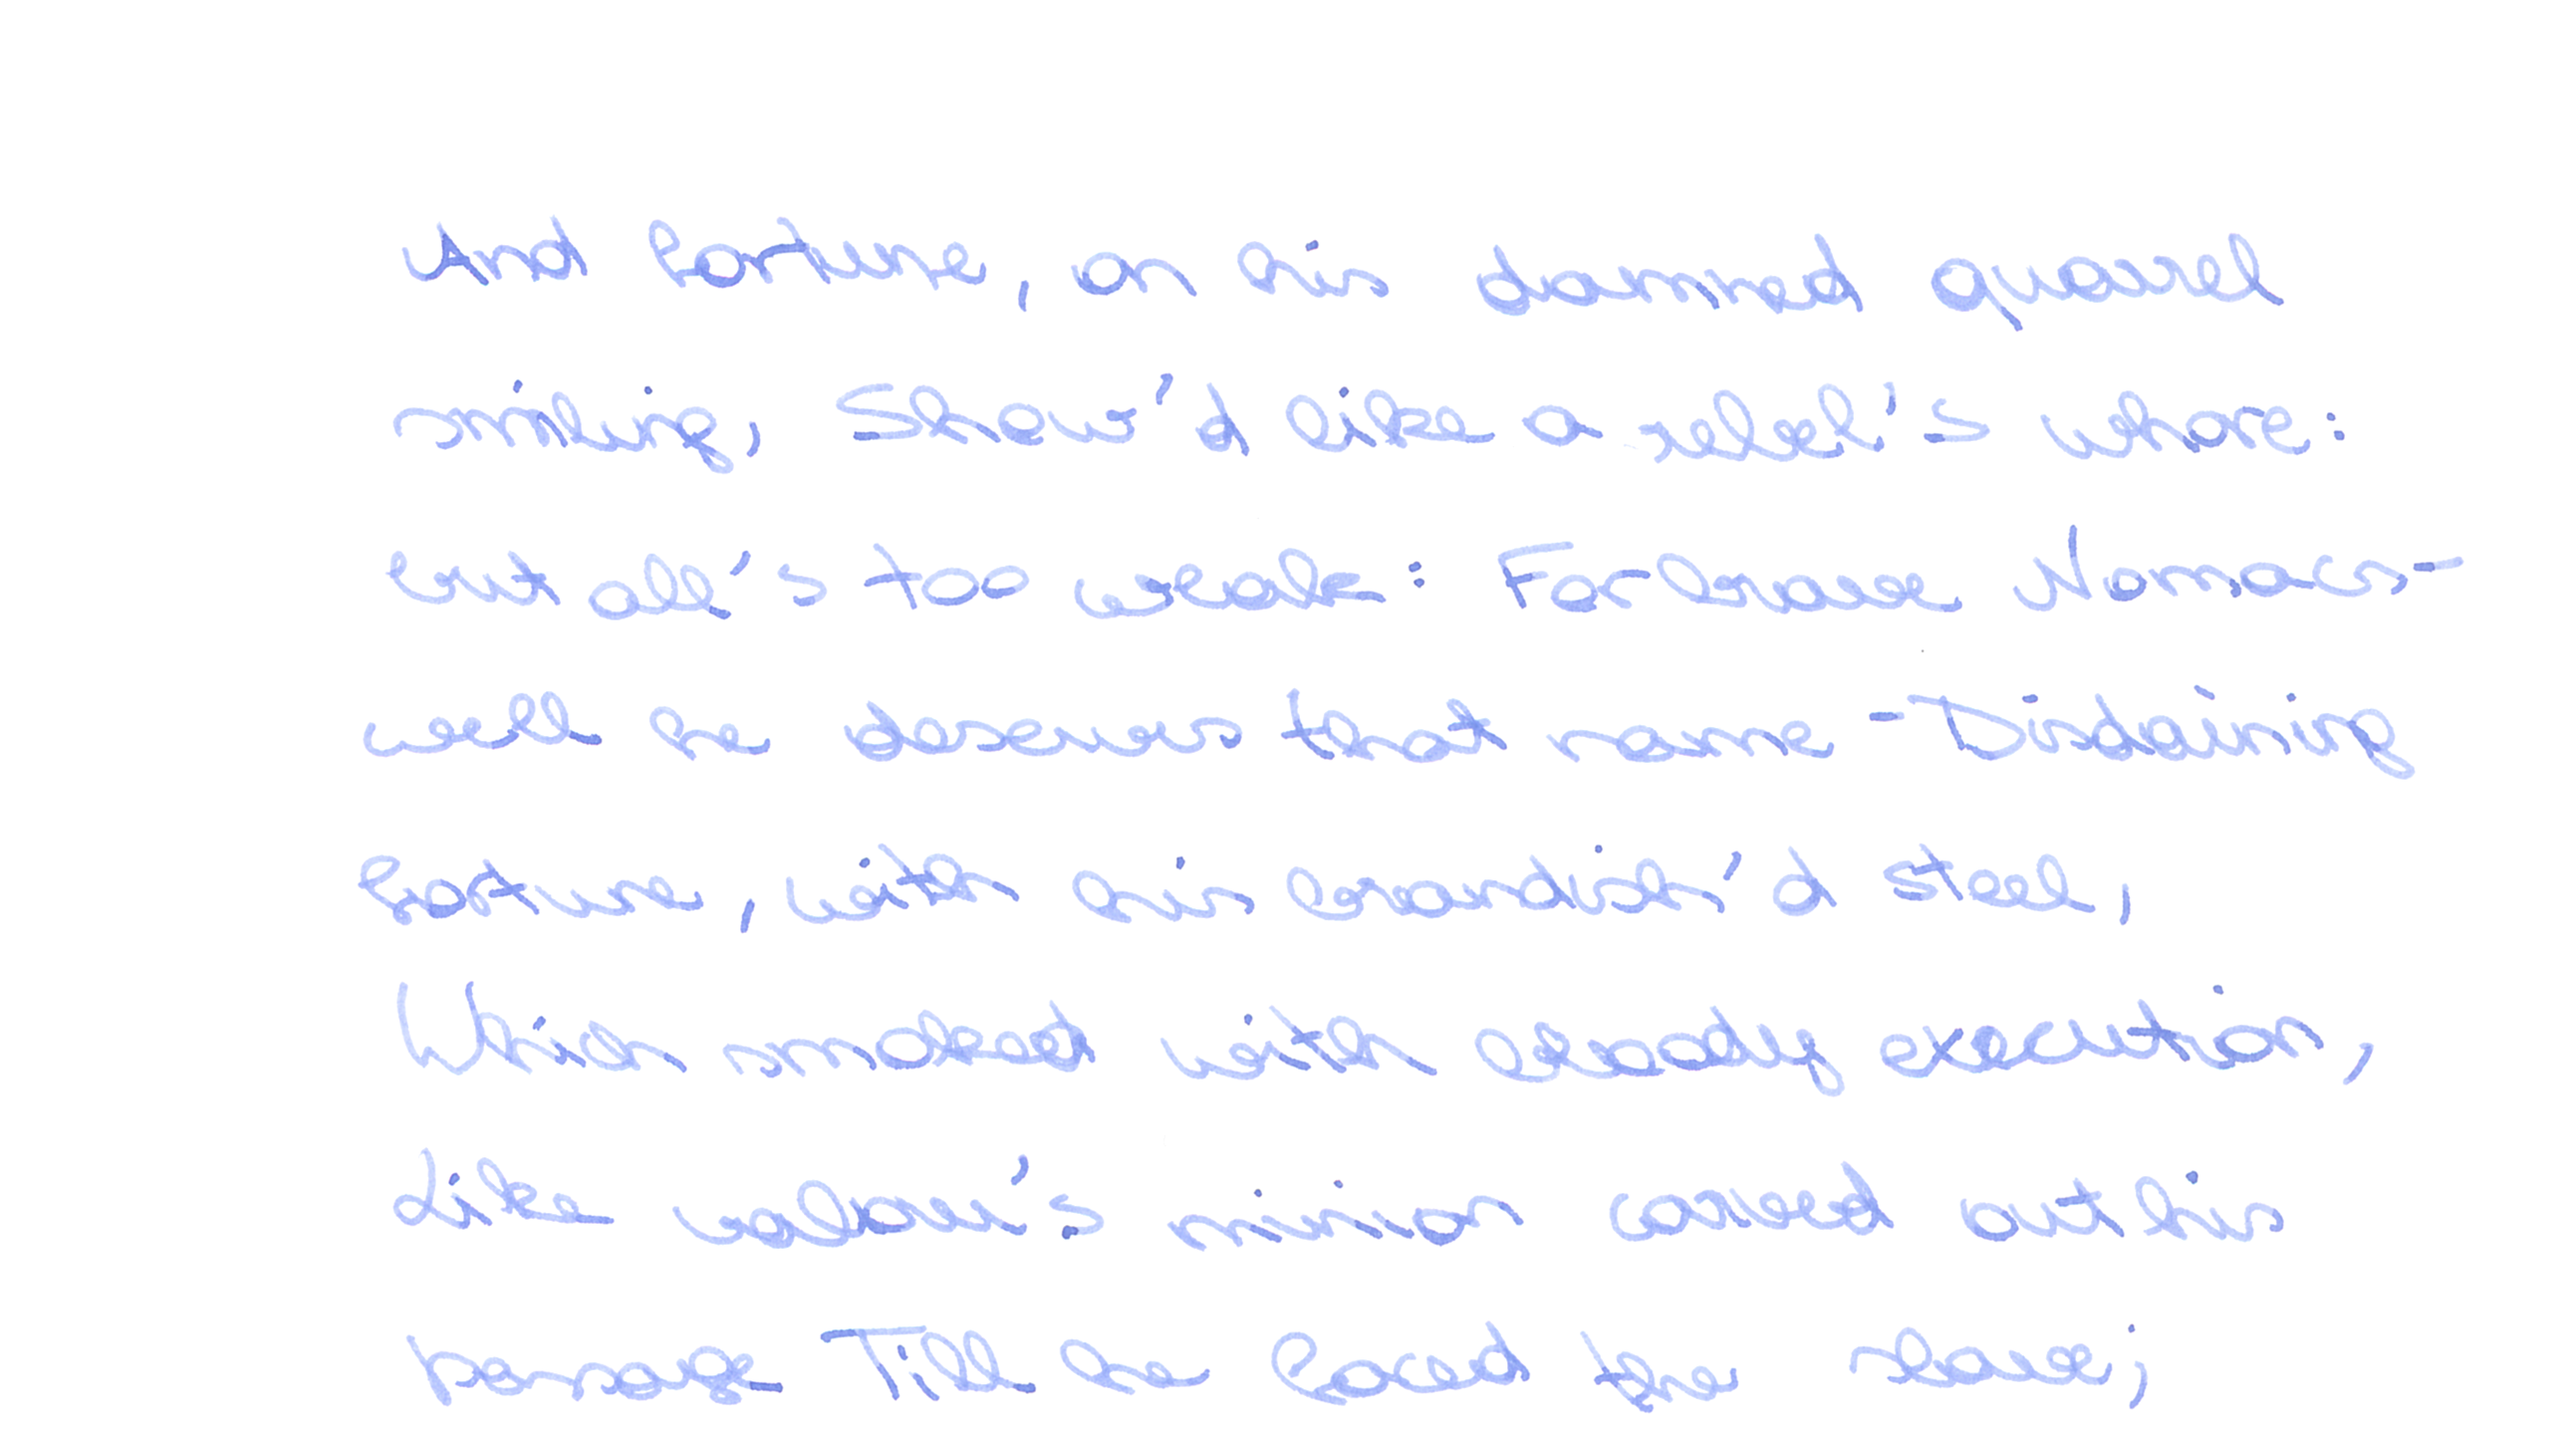 And fortune, on his damned quarrel
smiling, Show'd like a rebel's whore:
but all's too weak: For brave Nomacs-
well he deserves that name - Disdaining
fortune, with his brandish'd steel,
Which smoked with bloody execution,
Like valour's minion carved out his
passage Till he faced the slave;